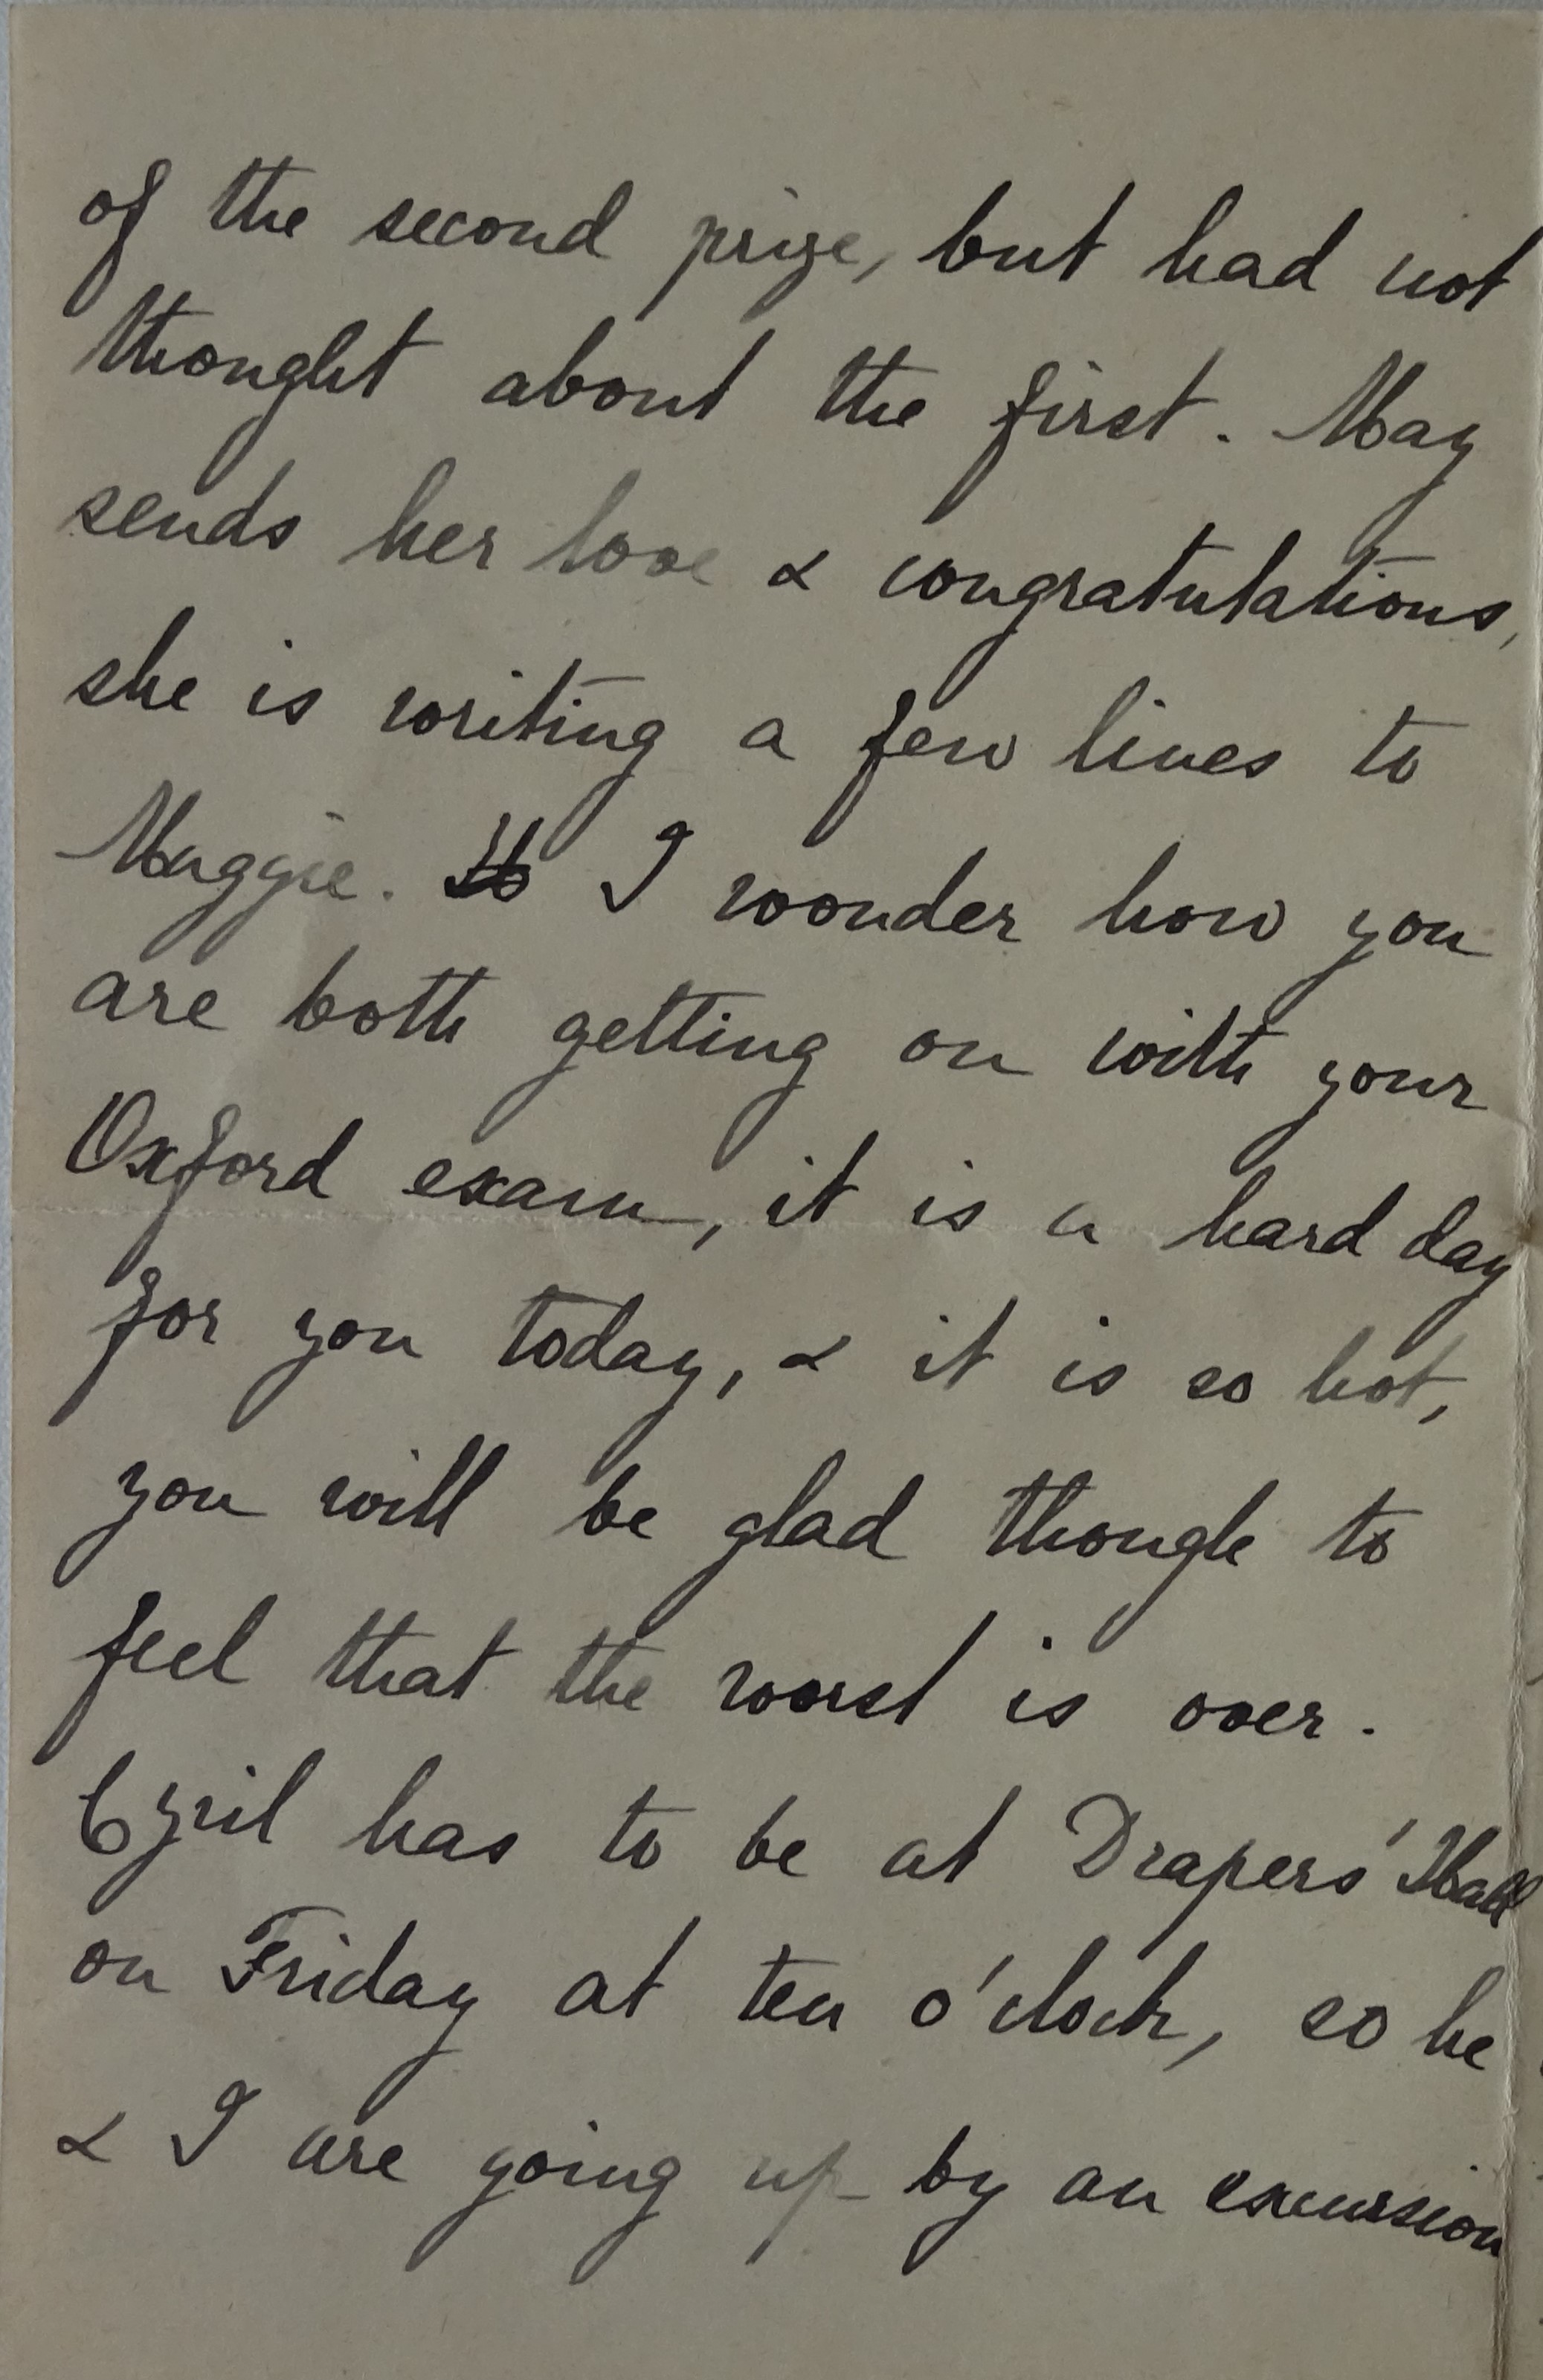 of the second prize, but had not
thought about the first. May
sends her love & congratulations,
she is writing a few lines to
Maggie. I wonder how you
are both getting on with your
Oxford exam, it is a hard day
for you today, & it is so hot,
you will be glad though to
feel that the worst is over.
Cyril has to be at Drapers' Hall
on Friday at ten o'clock, so he
& I are going up by an excursion